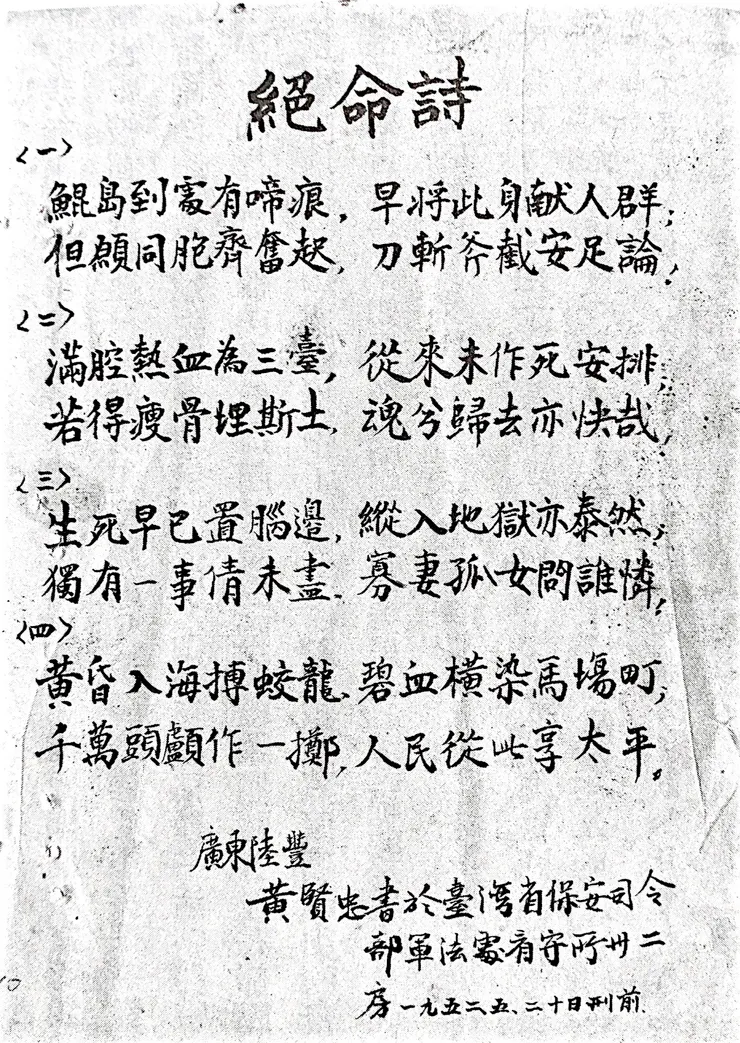 絕命詩
<一>
鯤島到處有啼痕, 早將此身献人群;
但願同胞齊奮起, 刀斬斧截安足論,
<二>
滿腔熱血為三臺, 從來未作死安排;
若得瘦骨埋斯土, 魂兮歸去亦快哉,
<三>
生死早已置腦邊, 縱入地獄亦泰然;
獨有一事情未盡、寡妻孤女問誰憐,
<四>
黃昏入海搏蛟龍、碧血橫染馬塲町;
千萬頭顱作一擲, 人民從此享太平。
廣東陸豐
黃賢忠書於臺灣省保安司令
部軍法處看守所卅二
房一九五二、五、二十日刑前